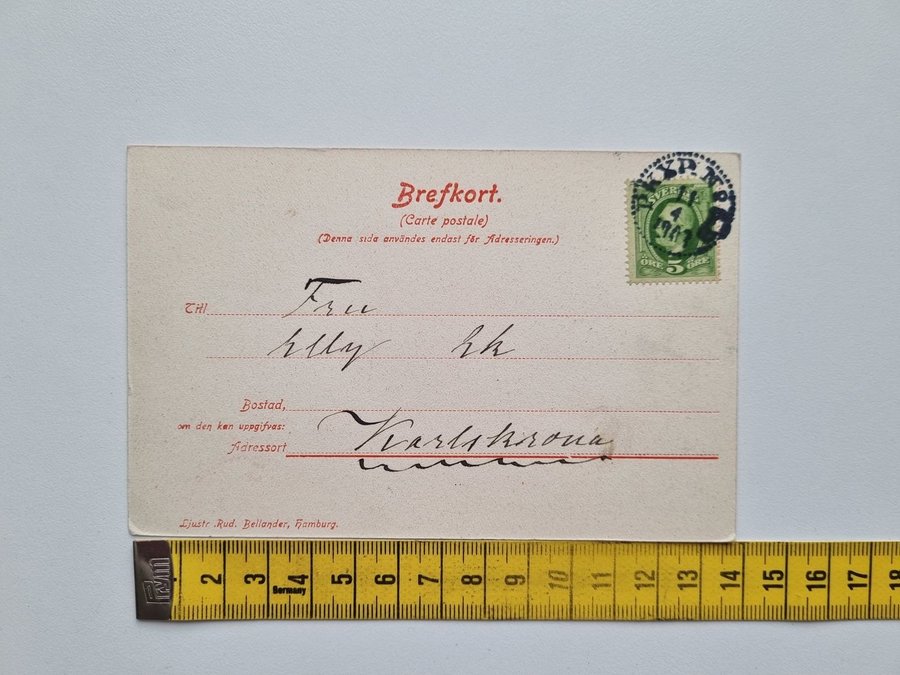 Brefkort.
(Carte postale)
(Denna sida användes endast för Adresseringen.)
PKXP. No
11
4
1903
SVERIGE
ÖRE 5 ÖRE
Till Fru
Elly Ek
Bostad,
om den kan uppgifvas:
Adressort Karlskrona
Ljustr. Rud. Bellander, Hamburg.
2 3 4 5 6 7 8 9 10 11 12 13 14 15 16 17 18
Germany